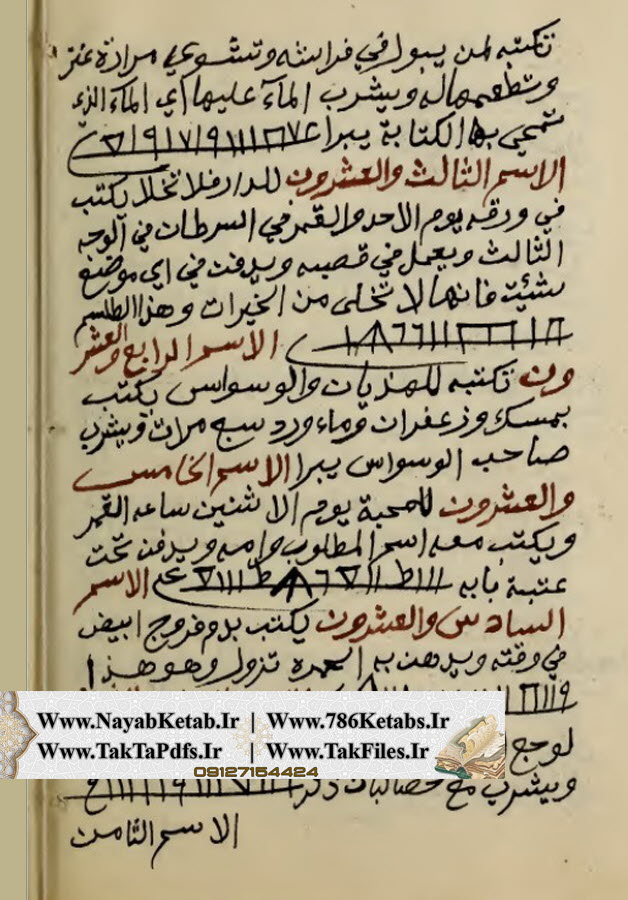 تكتبه لمن يبول في فراشه وتشوي مرارة عنز
وتطعمهاله ويشرب المآء عليها اي المآء الذي
تمحي بها الكتابة يبرا
الاسم الثالث والعشرون للدار فلا تخلا يكتب
في ورقه يوم الاحد والقمر في السرطان في الوجه
الثالث ويعمل في قصبه ويدفن في اي موضع
شئت فانها لا تخلى من الخيرات وهذا الطلسم
الاسم الرابع والعشر
ون تكتبه للهذيان والوسواس يكتب
بمسك وزعفران وماء ورد سبع مرات ويشرب
صاحب الوسواس يبرا الاسم الخامس
والعشرون للمحبة يوم الاثنين ساعه القمر
ويكتب معه اسم المطلوب وامه ويدفن تحت
عتبة بابه الاسم
السادس والعشرون يكتب بدم فروج ابيض
في وقته ويدهن به الحمره تزول وهو هذا
Www.NayabKetab.Ir | Www.786Ketabs.Ir
Www.TakTaPdfs.Ir | Www.TakFiles.Ir
09127154424
لوجع
ويشرب مع حصالبان ذكر
الاسم الثامن